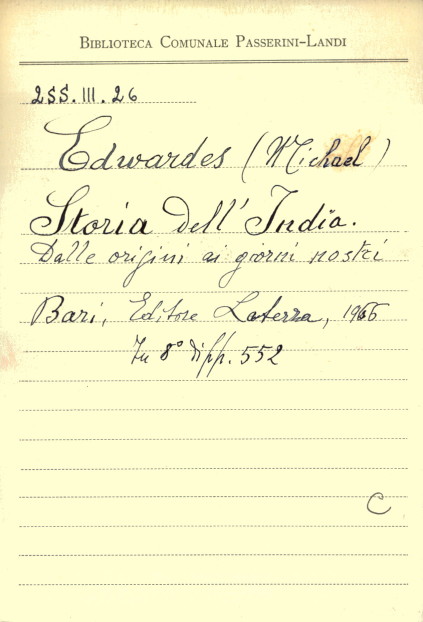 BIBLIOTECA COMUNALE PASSERINI-LANDI
2SS.III.26
Edwardes (Michael)
Storia dell'India.
Dalle origini ai giorni nostri
Bari, Editore Laterza, 1966
In 8° di pp. 552
C